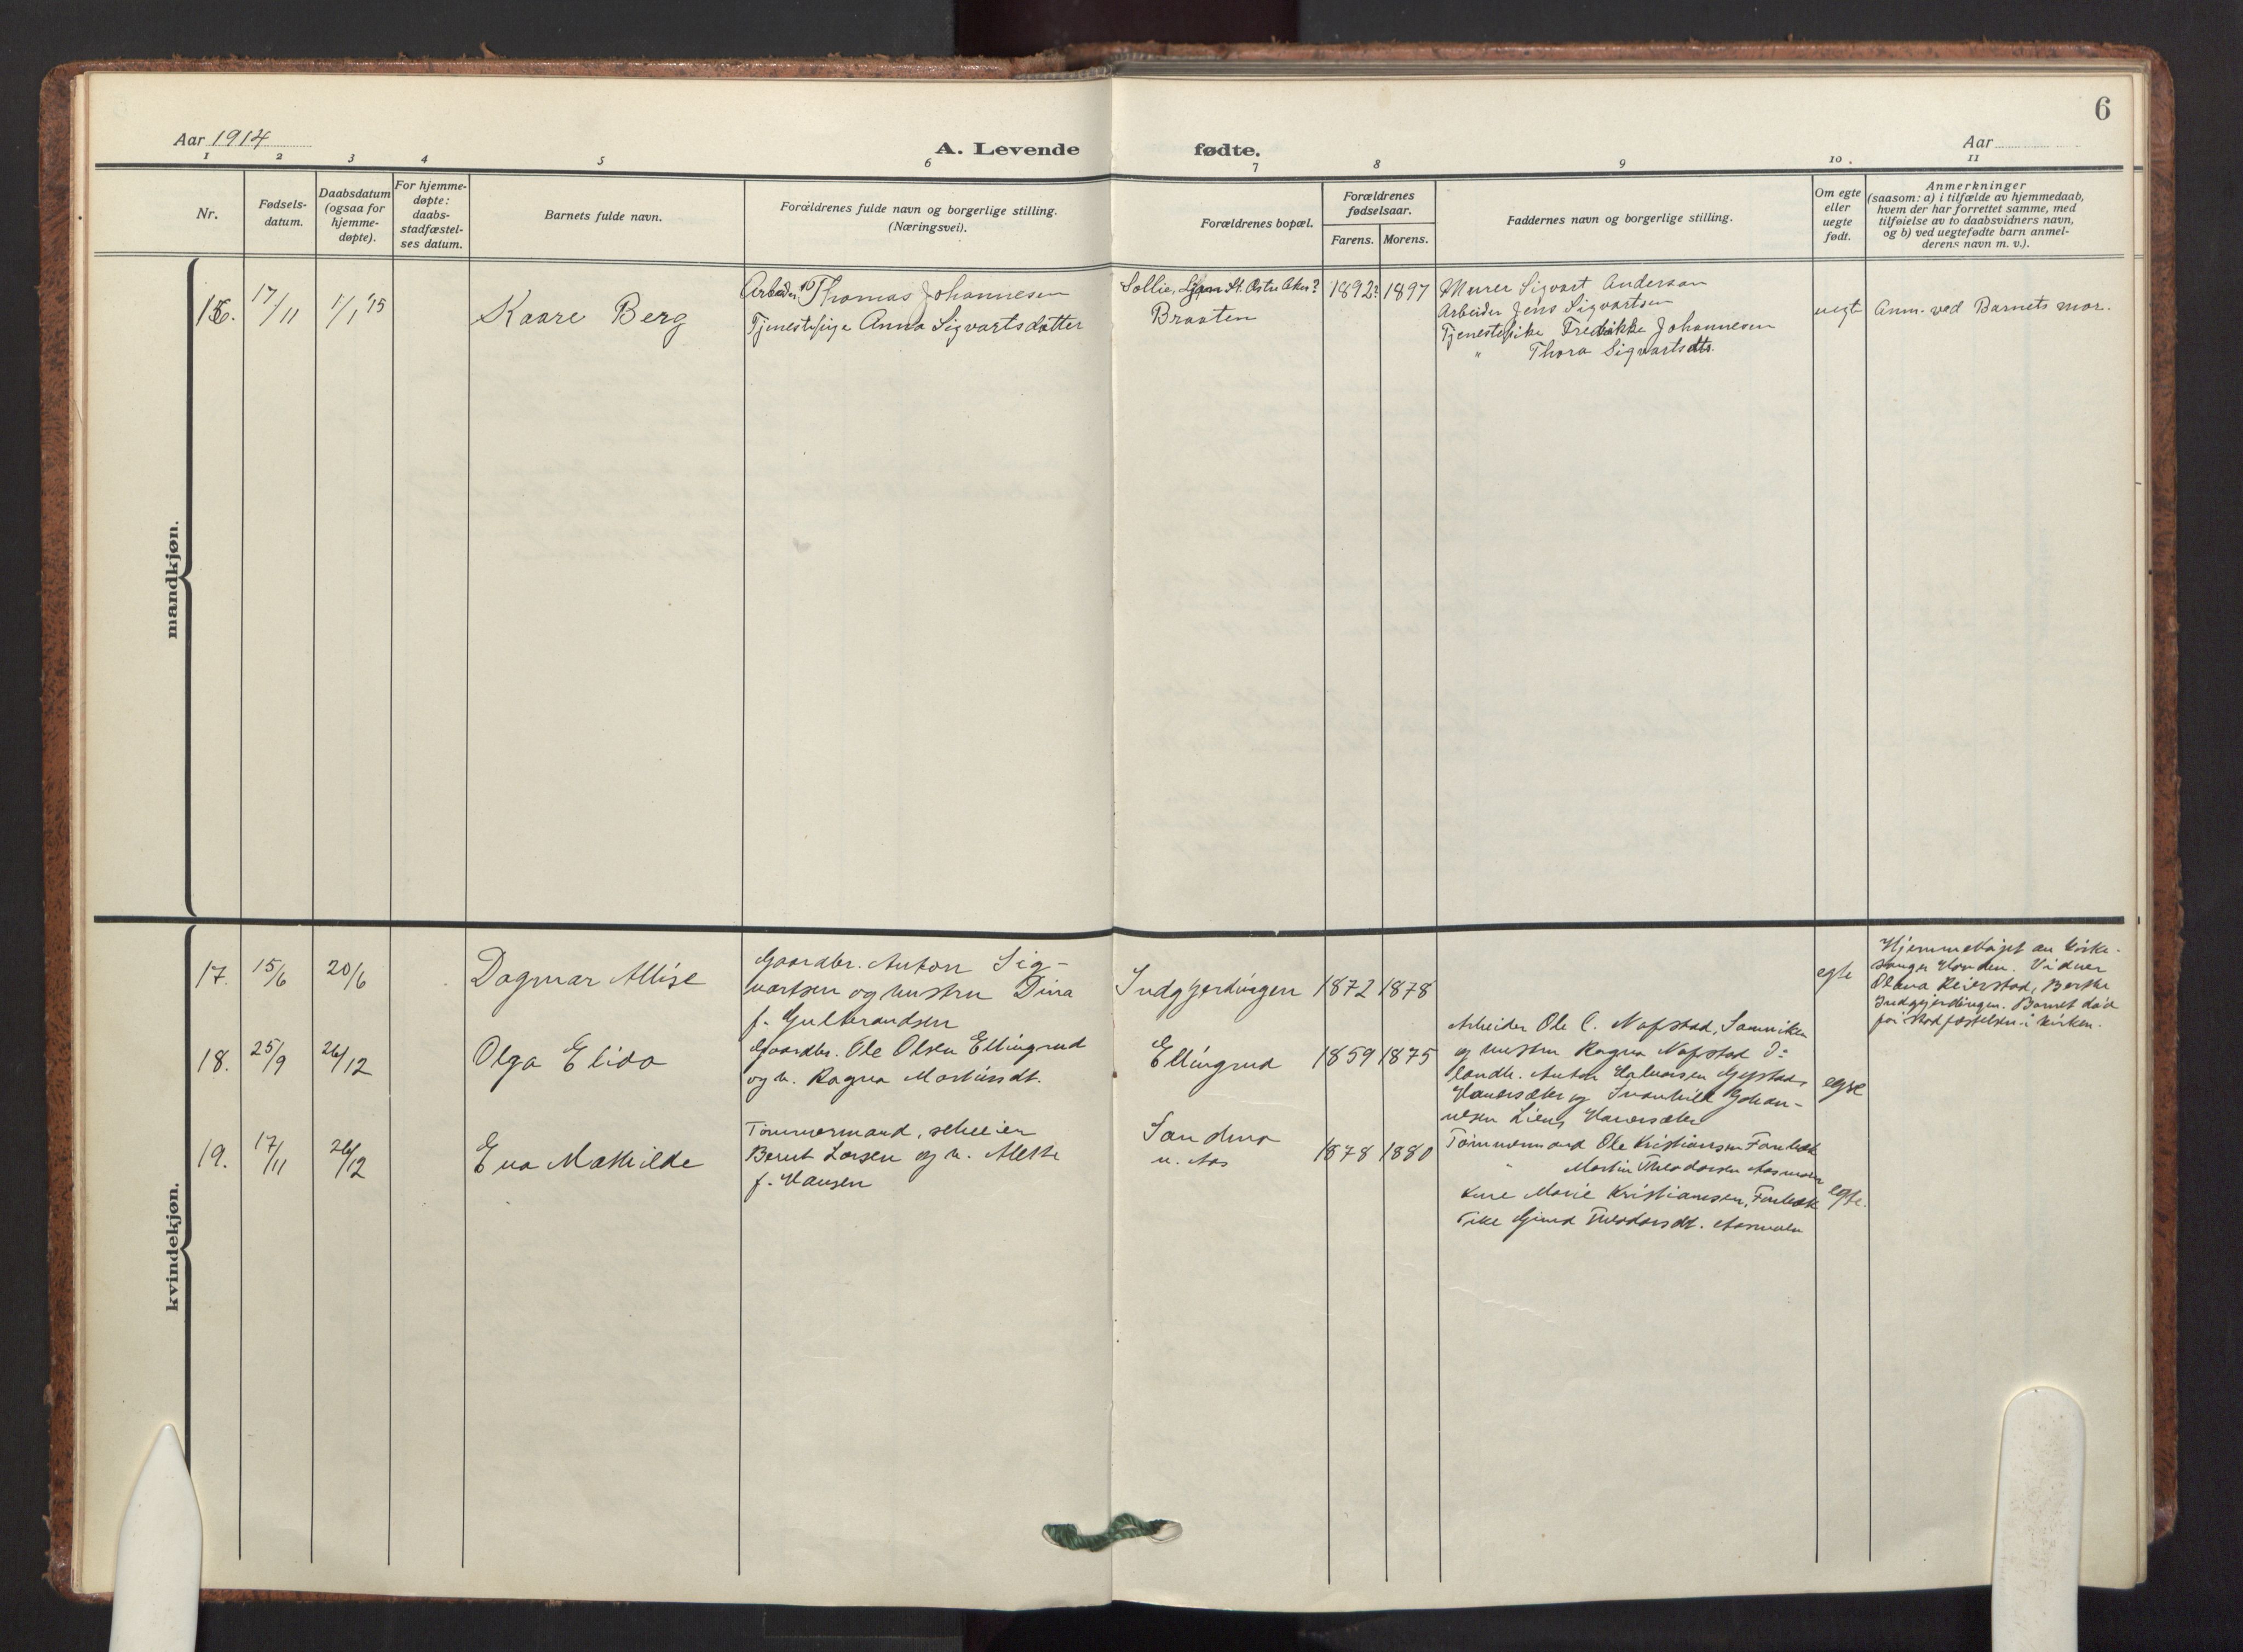 6
Aar 1914
A. Levende fødte.
Aar
1 2 3 4 5 6 7 8 9 10. 11
Nr.
Fødsels-
datum.
Daabsdatum
(ogsaa for
hjemme-
døpte).
For hjemme-
døpte:
daabs-
stadfæstel-
ses datum.
Barnets fulde navn.
Forældrenes fulde navn og borgerlige stilling.
(Næringsvei).
Forældrenes bopæl.
Forældrenes
fødselsaar.
Farens. Morens.
Faddernes navn og borgerlige stilling.
Om egte
eller
uegte
født.
Anmerkninger
(saasom: a) i tilfælde av hjemmedaab,
hvem der har forrettet samme, med
tilføielse av to daabsvidners navn,
og b) ved uegtefødte barn anmel-
derens navn m. v.).
mandkjøn.
16. 17/11 1/1 '15
Kaare Berg
Arbeider Thomas Johannesen
Tjenestepige Anna Sigvartsdatter
Sollie, St. Østre Aker?
Braaten
1892? 1897
Murer Sigvart Andersen
Arbeider Jens Sigvartsen
Tjenestepike Fredrikke Johannesen
" Thora Sigvartsdtr.
uegt
Anm. ved Barnets mor.
kvindekjøn.
17. 15/6 20/6
Dagmar Alise
Gaardbr. Anton Sig-
vartsen og hustru Dina
f. Gulbrandsen
Indgjerdingen
1872 1878
egte
Hjemmedøpt av kirke-
sanger Vidner
Olava Reierstad, Berthe
Indgjerdingen. Barnet død
før stadfæstelsen i kirken.
18. 25/9 26/12
Olga Elida
Gaardbr. Ole Olsen Ellingrud
og h. Ragna Martinsdt.
Ellingrud
1859 1875
Arbeider Ole C. Nafstad,
og hustru Ragna Nafstad
Anton Halvorsen
og
egte
19. 17/11 26/12
Eva Mathilde
Tømmermand, selveier
Bernt Larsen og h. Alette
f. Hansen
u. Aas
1878 1880
Tømmermand Ole Kristiansen
" Martin Theodorsen Aasmoen
Kone Marie Kristiansen,
Pike Theodorsdt. Aasmoen
egte.